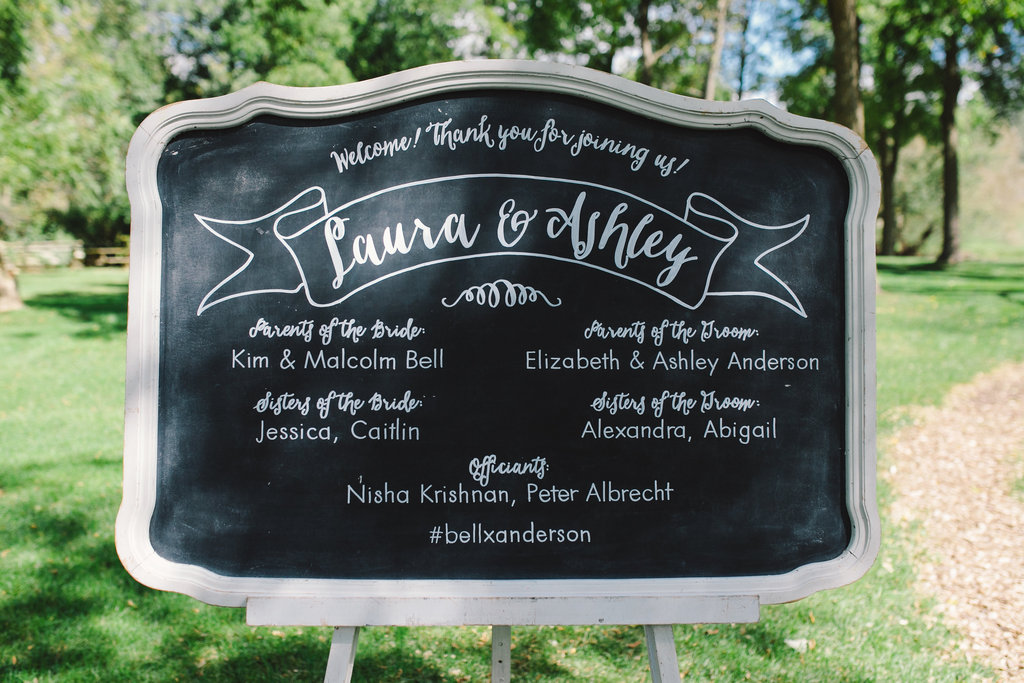 Welcome! Thank you for joining us!
Laura & Ashley
Parents of the Bride:
Kim & Malcolm Bell
Parents of the Groom:
Elizabeth & Ashley Anderson
Sisters of the Bride:
Jessica, Caitlin
Sisters of the Groom:
Alexandra, Abigail
Officiants:
Nisha Krishnan, Peter Albrecht
#bellxanderson